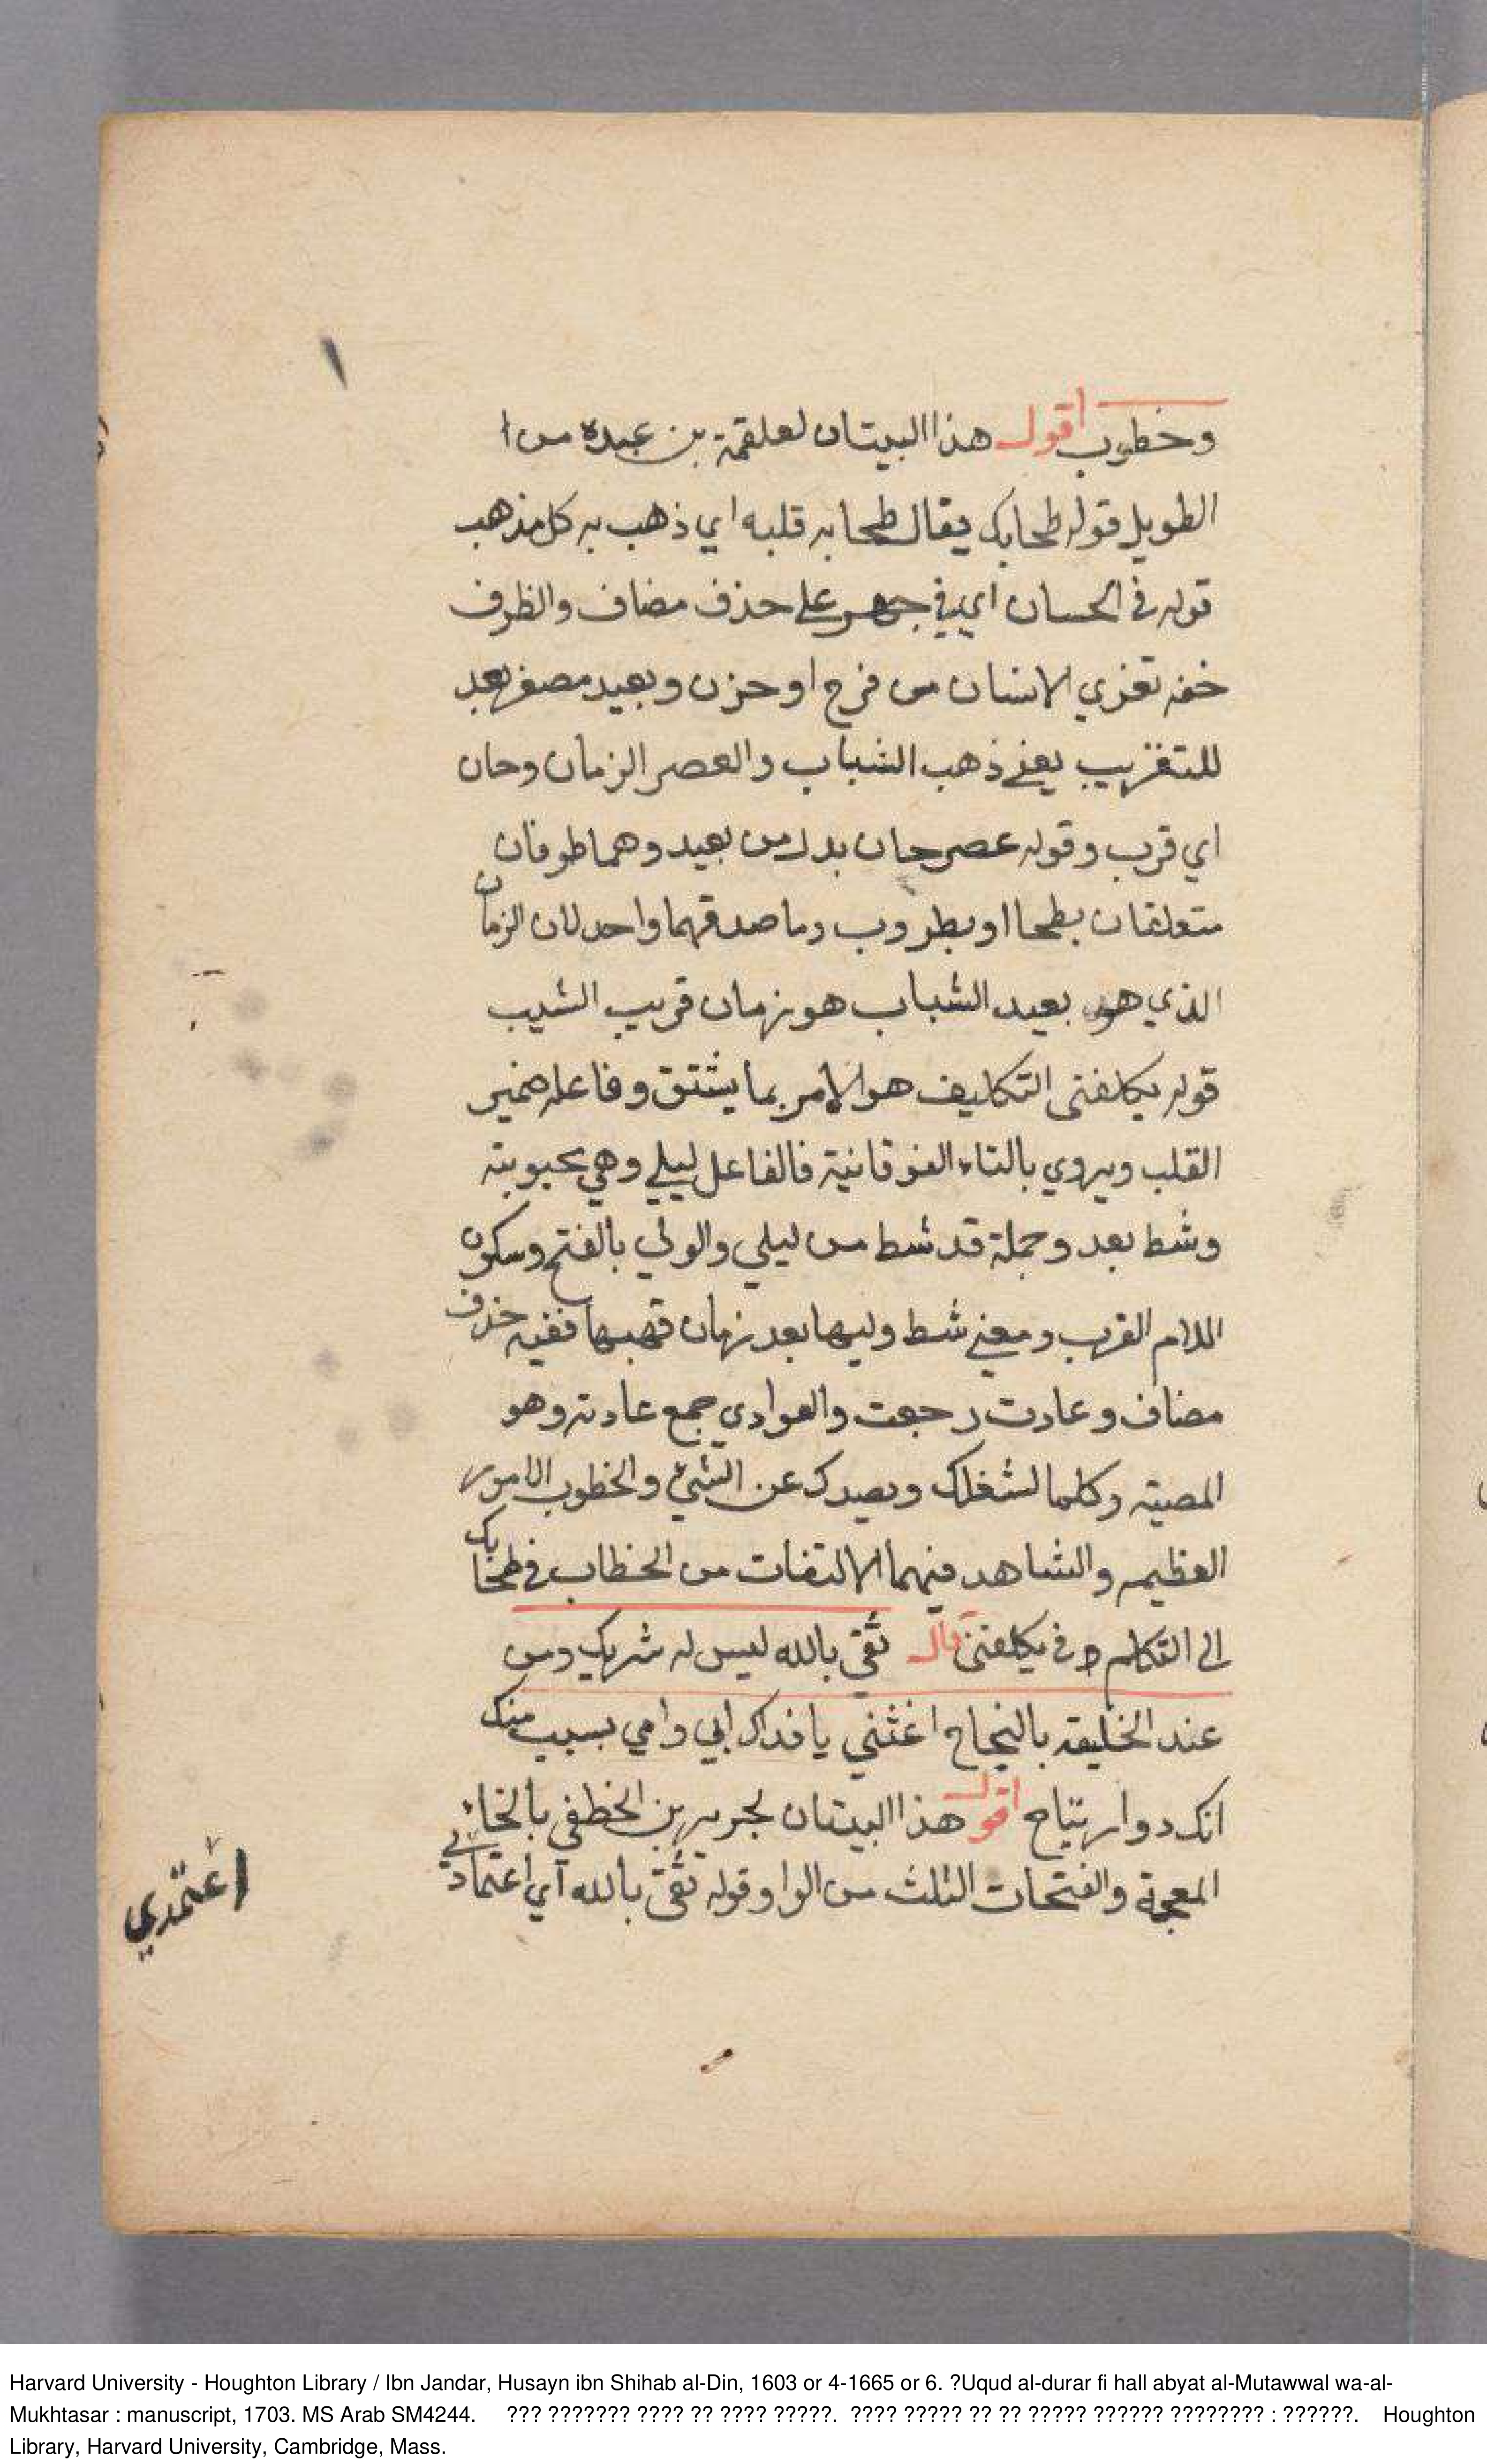 وخطوب اقول هذا البيتان لعلقمة بن عبده من ا
الطويل قوله طحابك يقال طحا به قلبه اي ذهب به كل مذهب
قوله في الحسان اي في علي حذف مضاف والظرف
خفه تعزي الانسان من فرح او حزن وبعيد مصغر بعد
للتقريب يعني ذهب الشباب والعصر الزمان وحان
اي قرب وقوله عصر حان بدل من بعيد وهما ظرفان
متعلقان بطحا او بطروب وما صدقهما واحد لان الزمان
الذي هو بعيد الشباب هو زمان قريب الشيب
قوله يكلفني التكليف هو الامر بما يشتق وفاعله ضمير
القلب ويروي بالتاء الفوقانية فالفاعل ليلي وهي محبوبته
وشط بعد وجملة قد شط من ليلي والولي بالفتح وسكون
اللام القرب ومعني شط وليها بعد زمان قربها ففيه حذف
مضاف وعادت رجعت والعوادي جمع عادته وهو
المصيبة وكلما لشغلك ويصدك عن الشيء والخطوب الامور
العظيمه والشاهد فيهما الالتفات من الخطاب في طحابك
الي التكلم و في يكلفني قال ثقي بالله ليس له شريك ومن
عند الخليفه بالنجاح اغثني يا فداك ابي وامي بسيب منك
انك دوارتياح اقول هذا البيتان لجرير بن الخطفي بالخاء
المعجمة والفتحات الثلث من الوا وقوله ثقي بالله اي اعتمادي
اعتمدي
Harvard University - Houghton Library / Ibn Jandar, Husayn ibn Shihab al-Din, 1603 or 4-1665 or 6. ?Uqud al-durar fi hall abyat al-Mutawwal wa-al-
Mukhtasar : manuscript, 1703. MS Arab SM4244. ??? ??????? ???? ?? ???? ?????. ???? ????? ?? ?? ????? ?????? ???????? : ??????. Houghton
Library, Harvard University, Cambridge, Mass.